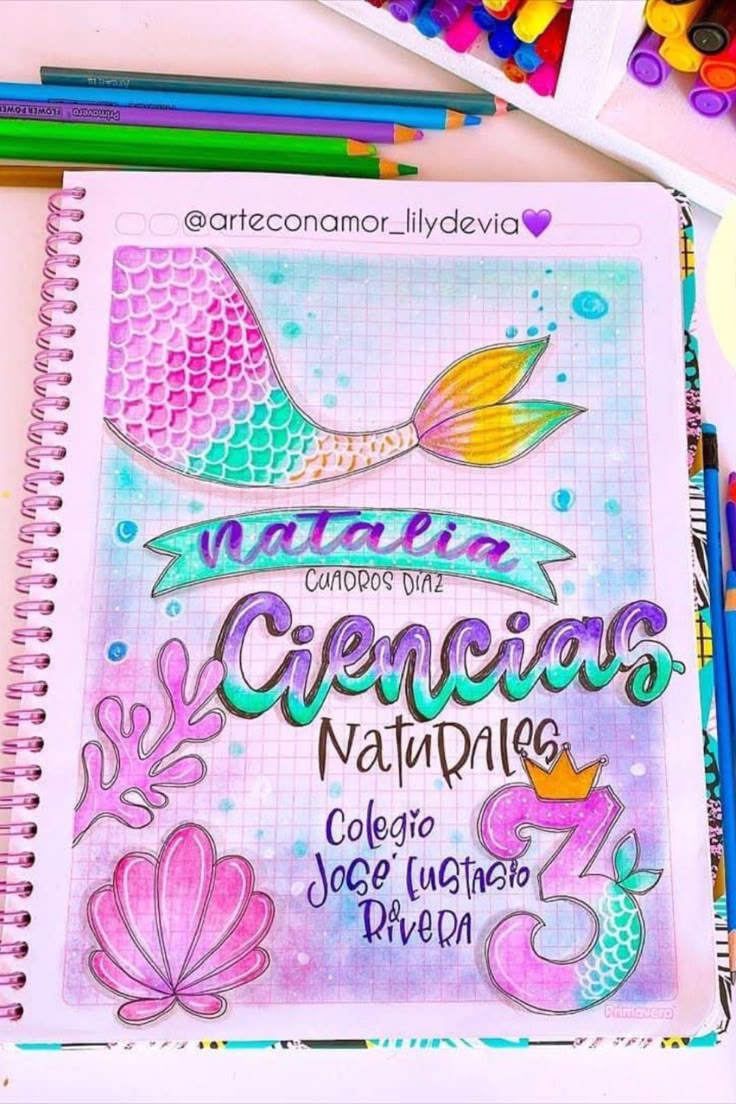 Primavera
FLOWER POWER
@arteconamor_lilydevia
Natalia
CUADROS DÍAZ
Ciencias
Naturales
Colegio
José Eustasio
Rivera
3
Primavera